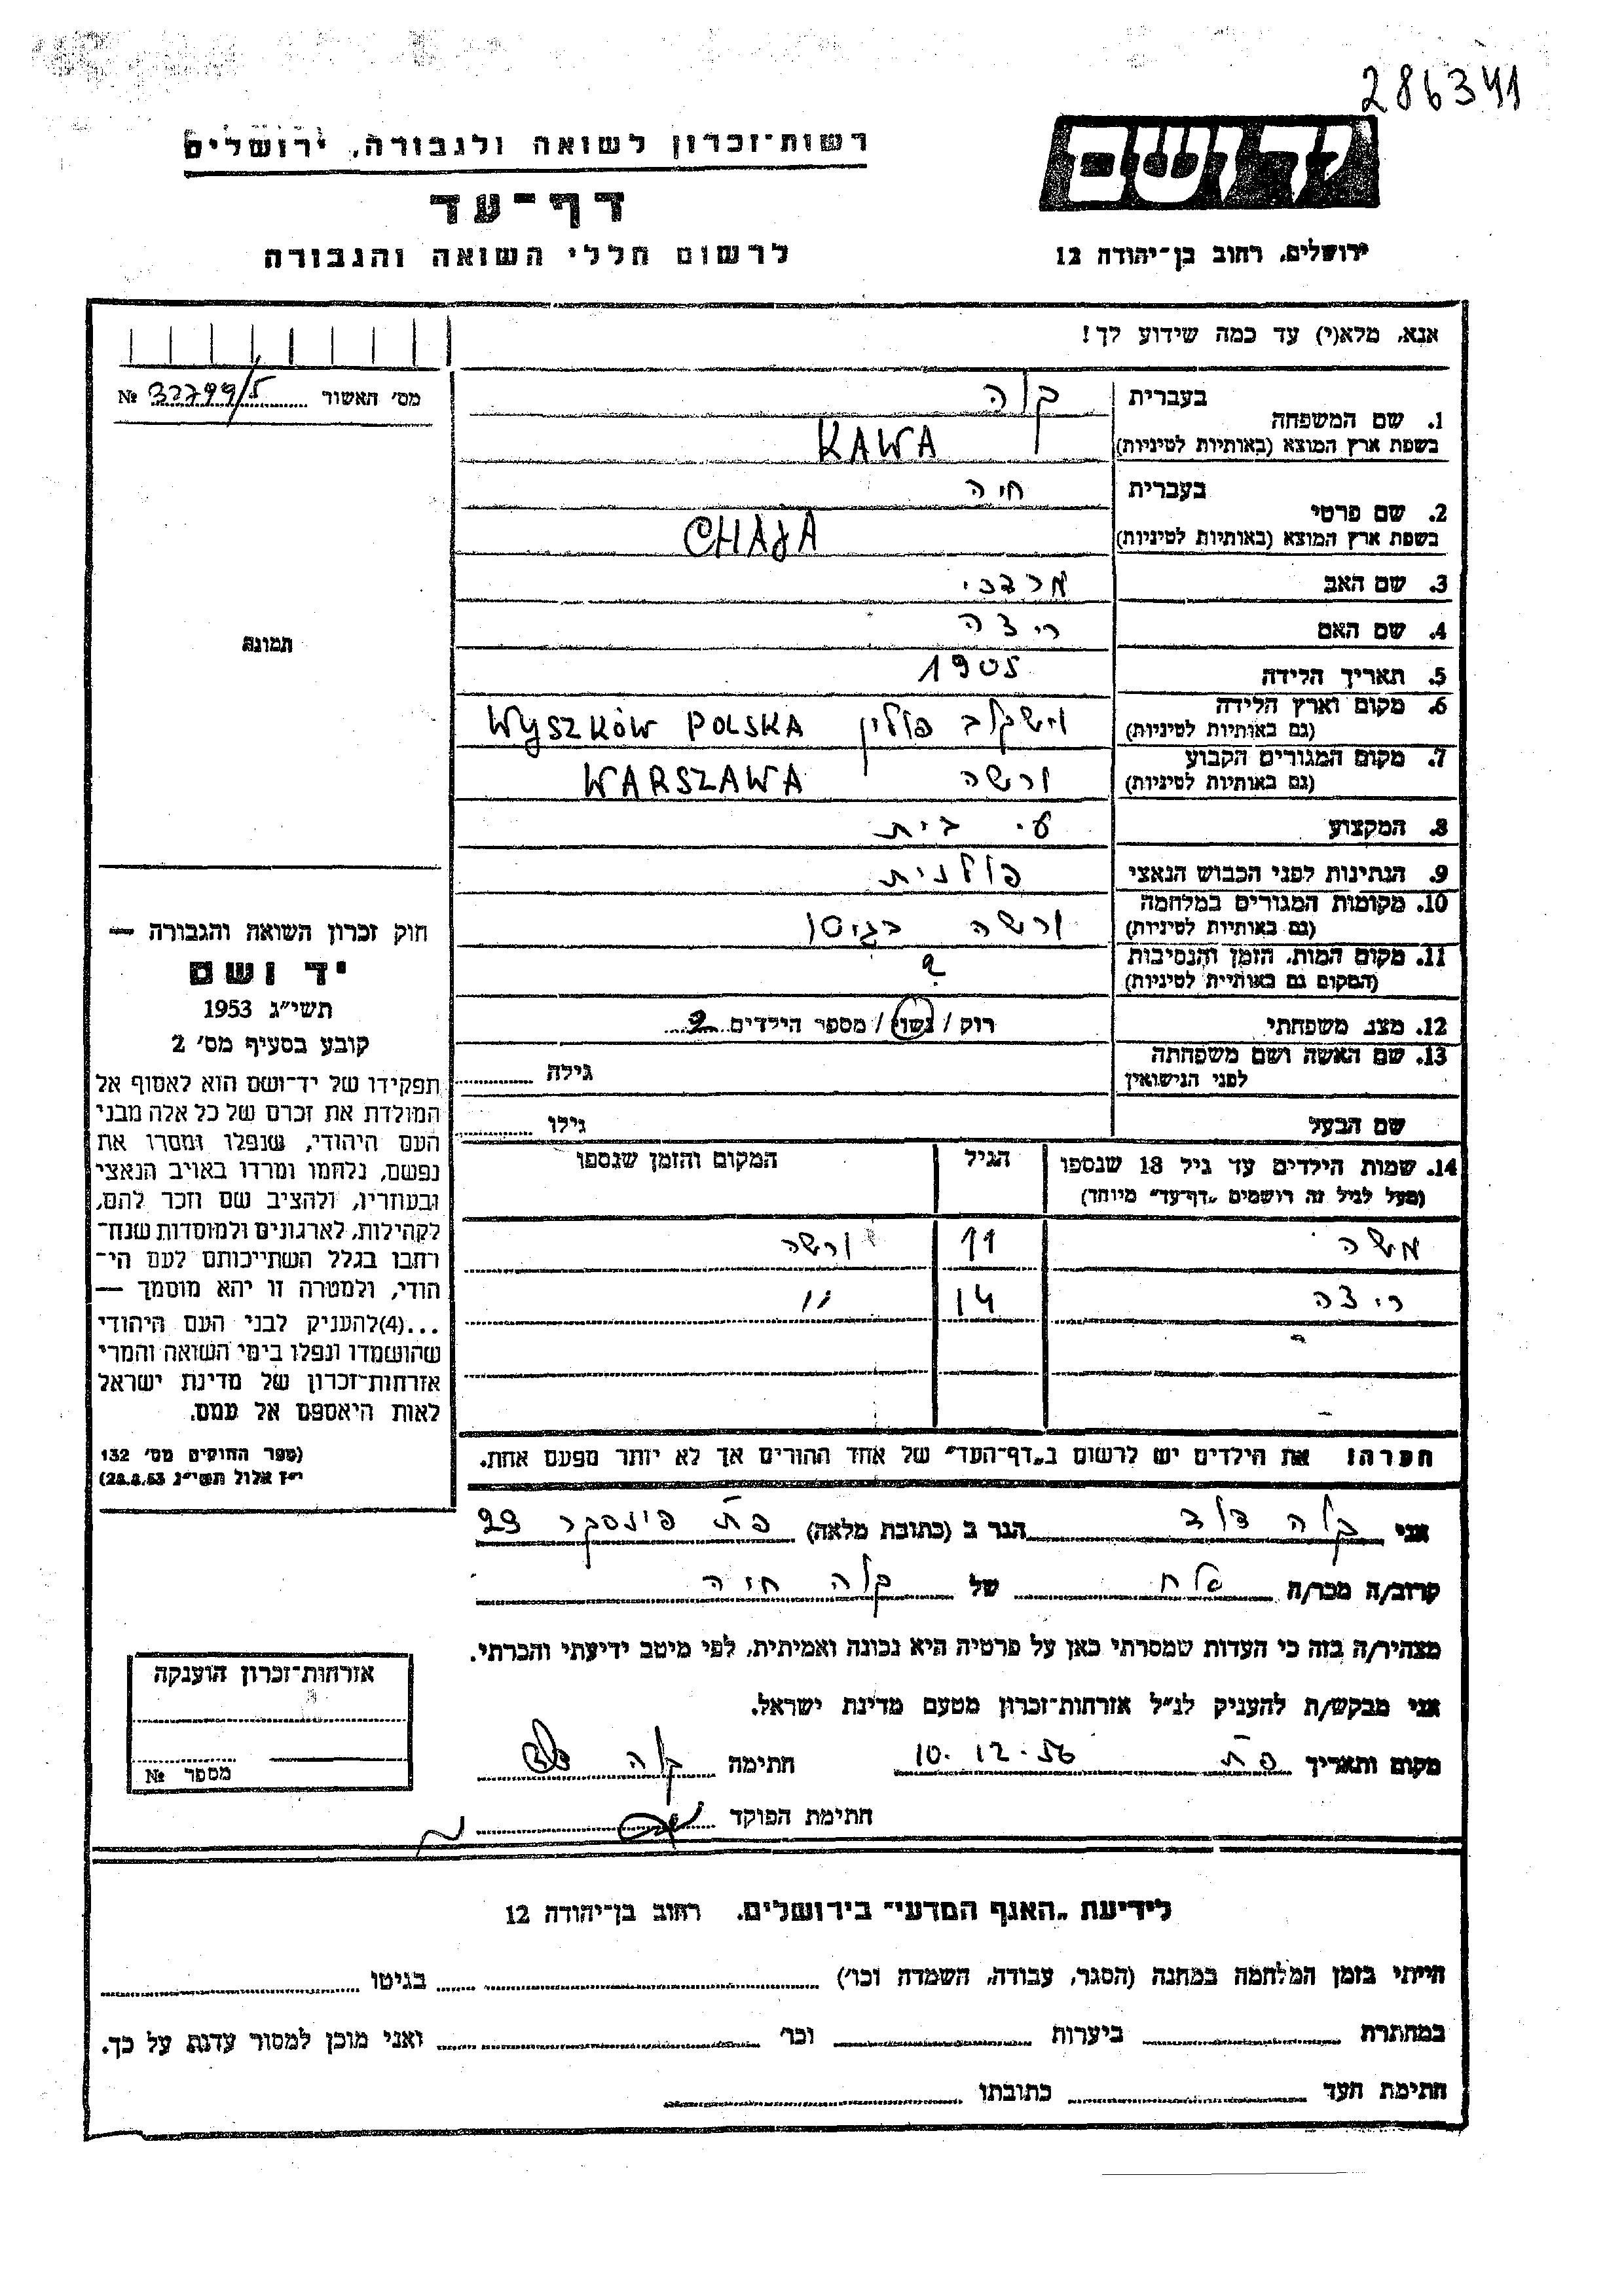 286341
יד ושם
רשות־זכרון לשואה ולגבורה, ירושלים
דף־עד
לרשום חללי השואה והגבורה
ירושלים, רחוב בן־יהודה 12
אנא, מלא(י) עד כמה שידוע לך!
מס׳ האשור 32799/5 №
1. שם המשפחה
בעברית קוה
בשפת ארץ המוצא (באותיות לטיניות) KAWA
2. שם פרטי
בעברית חיה
בשפת ארץ המוצא (באותיות לטיניות) CHAJA
3. שם האב מרדכי
4. שם האם ריצה
5. תאריך הלידה 1905
6. מקום וארץ הלידה
(גם באותיות לטיניות) וישקוב פולין WYSZKÓW POLSKA
7. מקום המגורים הקבוע
(גם באותיות לטיניות) ורשה WARSZAWA
8. המקצוע ע. בית
9. הנתינות לפני הכבוש הנאצי פולנית
10. מקומות המגורים במלחמה
(גם באותיות לטיניות) ורשה בגיטו
11. מקום המות, הזמן והנסיבות
(המקום גם באותיות לטיניות) ?
12. מצב משפחתי רוק / נשוי / מספר הילדים 2
13. שם האשה ושם משפחתה
לפני הנישואין גילה
שם הבעל גילו
14. שמות הילדים עד גיל 18 שנספו הגיל המקום והזמן שנספו
(מעל לגיל זה רושמים „דף־עד״ מיוחד)
משה 11 ורשה
ריצה 14 ״
הערה! את הילדים יש לרשום ב„דף־העד״ של אחד ההורים אך לא יותר מפעם אחת.
תמונה
חוק זכרון השואה והגבורה —
יד ושם
תשי״ג 1953
קובע בסעיף מס׳ 2
תפקידו של יד־ושם הוא לאסוף אל
המולדת את זכרם של כל אלה מבני
העם היהודי, שנפלו ומסרו את
נפשם, נלחמו ומרדו באויב הנאצי
ובעוזריו, ולהציב שם וזכר להם,
לקהילות, לארגונים ולמוסדות שנח־
רבו בגלל השתייכותם לעם הי־
הודי, ולמטרה זו יהא מוסמך —
...(4)להעניק לבני העם היהודי
שהושמדו ונפלו בימי השואה והמרי
אזרחות־זכרון של מדינת ישראל
לאות היאספם אל עמם.
(ספר החוקים מס׳ 132
י״ז אלול תשי״ג 28.8.53)
אני קוה דוב הגר ב (כתובת מלאה) פת פינסקר 29
קרוב/ה מכר/ה אח של קוה חיה
מצהיר/ה בזה כי העדות שמסרתי כאן על פרטיה היא נכונה ואמיתית, לפי מיטב ידיעתי והכרתי.
אני מבקש/ת להעניק לנ״ל אזרחות־זכרון מטעם מדינת ישראל.
מקום ותאריך פת 10.12.56 חתימה קוה דוב
חתימת הפוקד
אזרחות־זכרון הוענקה
מספר №
לידיעת „האגף המדעי״ בירושלים, רחוב בן־יהודה 12
הייתי בזמן המלחמה במחנה (הסגר, עבודה, השמדה וכו׳) בגיטו
במחתרת ביערות וכו׳ ואני מוכן למסור עדות על כך.
חתימת העד כתובתו